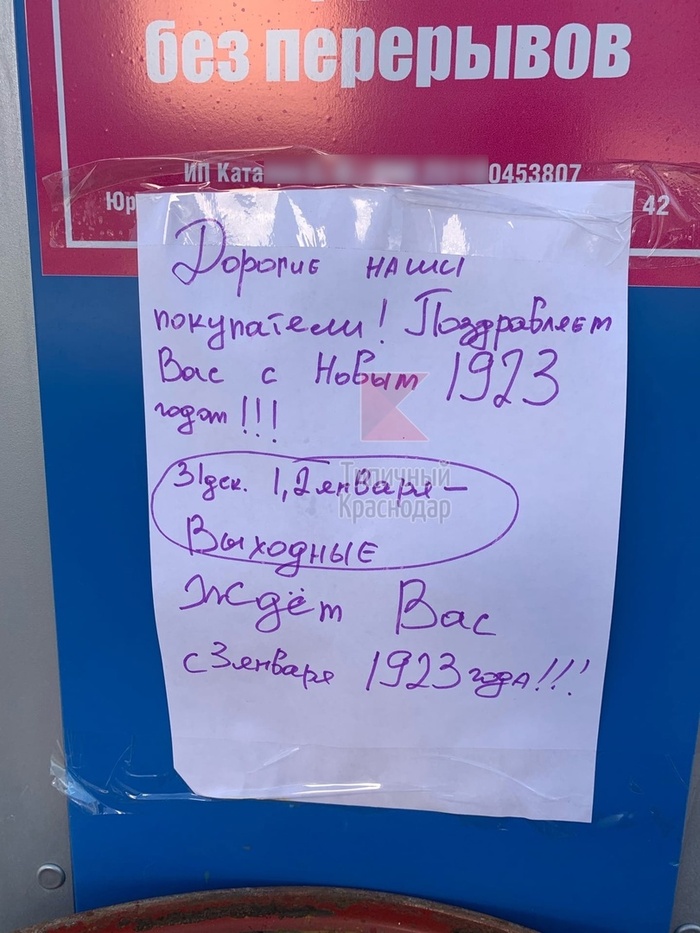 без перерывов
ИП Ката 0453807
Юр 42
Дорогие наши
покупатели! Поздравляем
Вас с Новым 1923
годом!!!
31дек. 1,2 января –
Выходные
Ждём Вас
с 3 января 1923 года!!!
Типичный
Краснодар